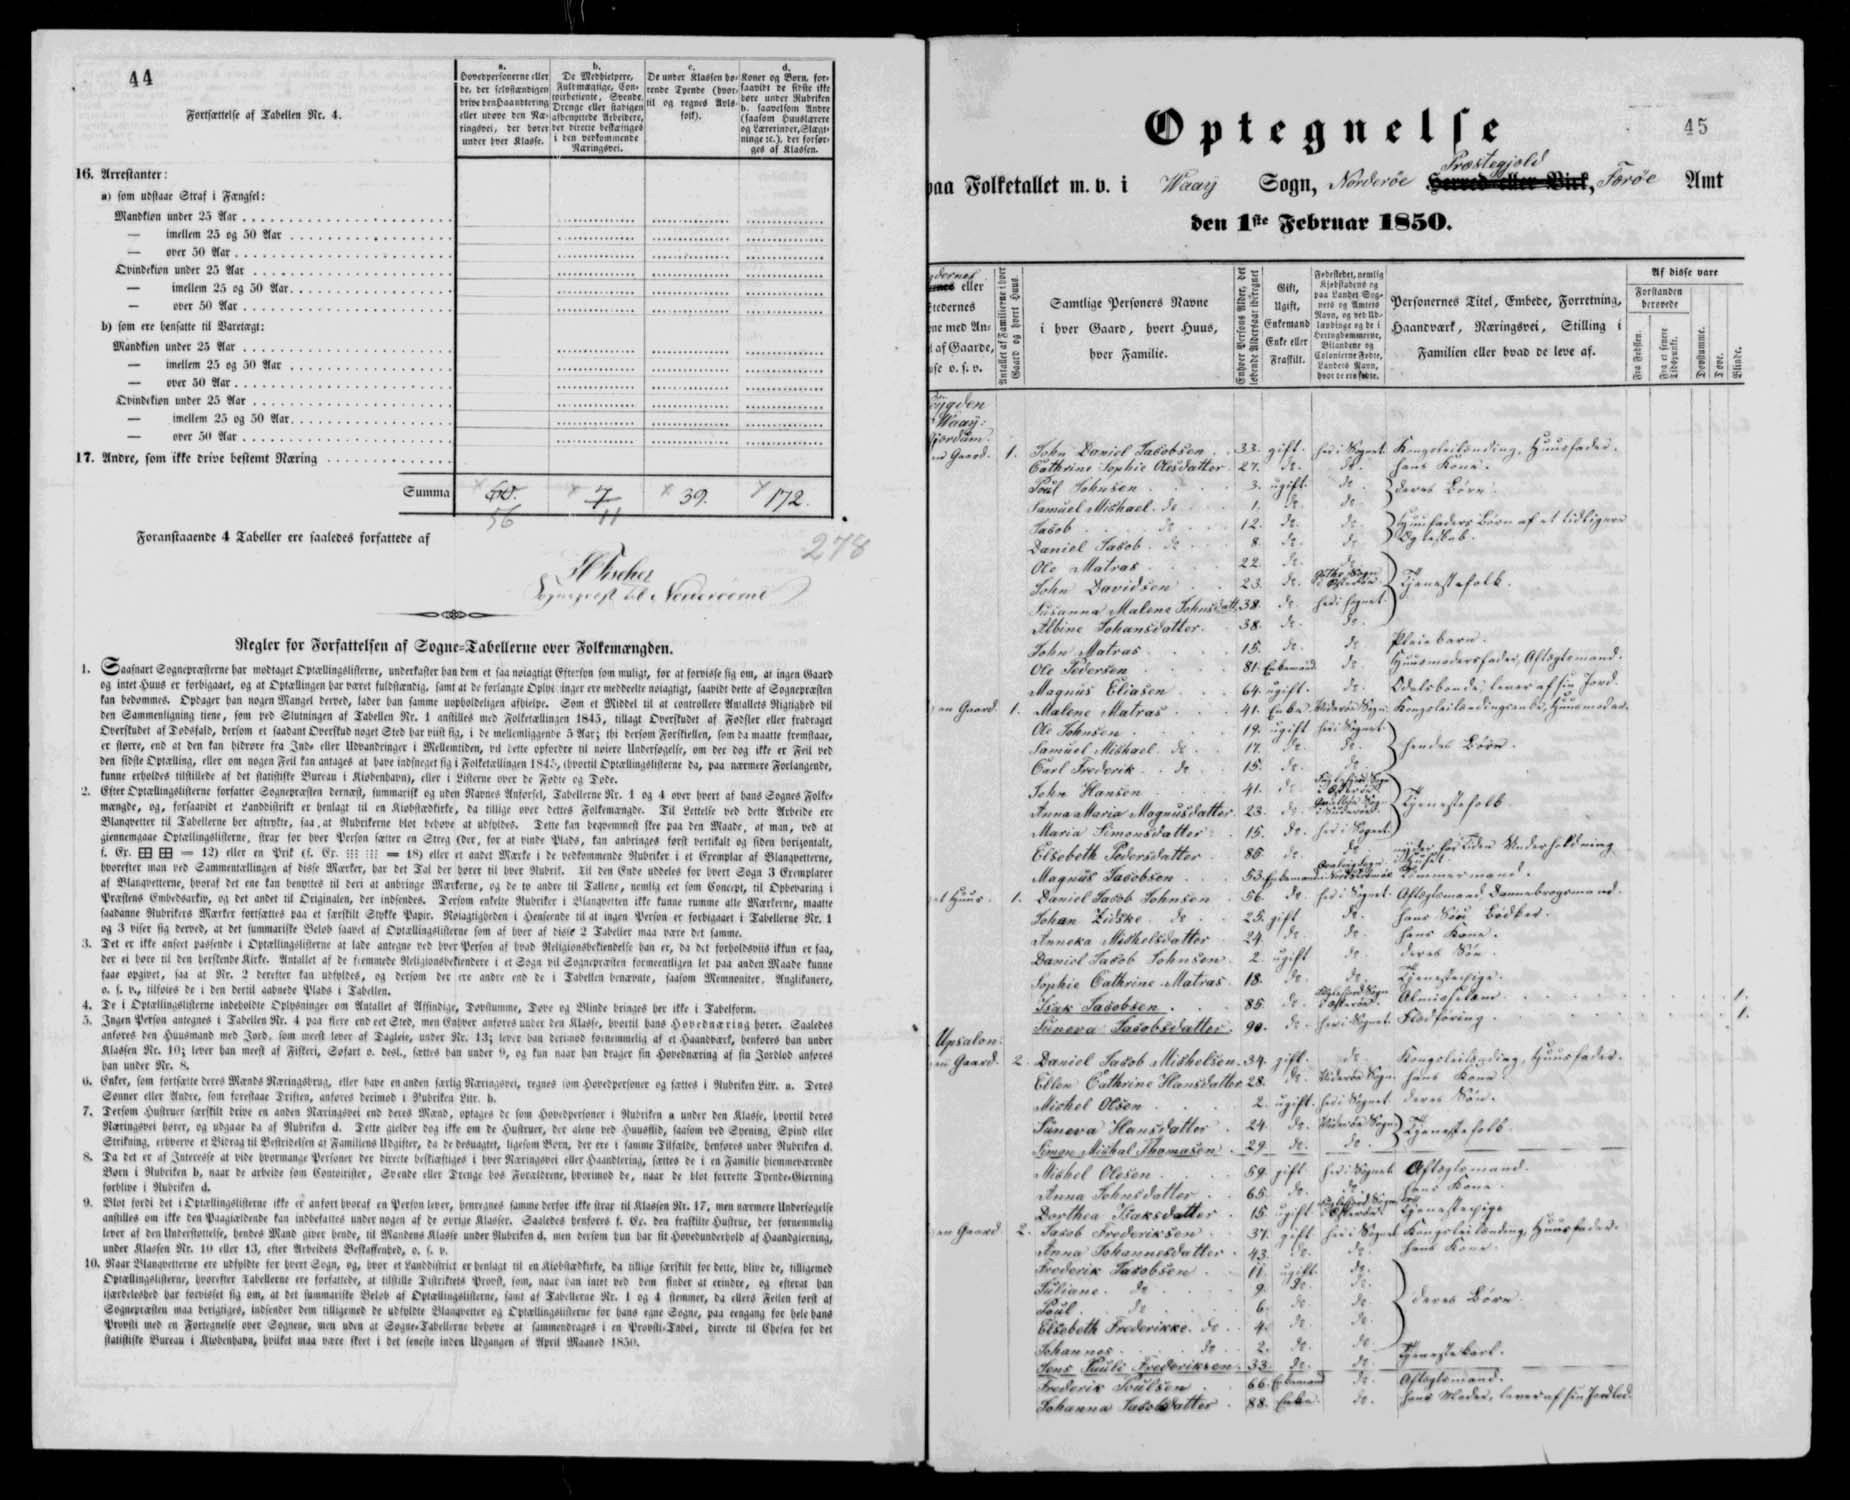 44
Fortsættelse af Tabellen Nr. 4.
a.
Hovedpersonerne eller
de, der selvstændigen
drive den Haandtering
eller udøve den Næ-
ringsvei, der hører
under hver Klasse.
b.
De Medhielpere,
Fuldmægtige, Con-
toirbetiente, Svende,
Drenge eller stadigen
afbenyttede Arbeidere,
der directe beskæftiges
i den vedkommende
Næringsvei.
c.
De under Klassen hø-
rende Tyende (hvor-
til og regnes Avls-
folk).
d.
Koner og Børn, for-
saavidt de sidste ikke
høre under Rubriken
b. saavelsom Andre
(saasom Huuslærere
og Lærerinder, Slægt-
ninge ꝛc.), der forsør-
ges af Klassen.
16. Arrestanter:
a) som udstaae Straf i Fængsel:
Mandkiøn under 25 Aar
— imellem 25 og 50 Aar
— over 50 Aar
Qvindekiøn under 25 Aar
— imellem 25 og 50 Aar
— over 50 Aar
b) som ere hensatte til Varetægt:
Mandkiøn under 25 Aar
— imellem 25 og 50 Aar
— over 50 Aar
Qvindekiøn under 25 Aar
— imellem 25 og 50 Aar
— over 50 Aar
17. Andre, som ikke drive bestemt Næring
Summa 60. 7 39. 172.
56 11
278
Foranstaaende 4 Tabeller ere saaledes forfattede af
Fischer
Sognepræst til Norderøerne
Regler for Forfattelsen af Sogne-Tabellerne over Folkemængden.
1. Saasnart Sognepræsterne har modtaget Optællingslisterne, underkaster han dem et saa nøiagtigt Eftersyn som muligt, for at forvisse sig om, at ingen Gaard
og intet Huus er forbigaaet, og at Optællingen har været fuldstændig, samt at de forlangte Oplysninger ere meddeelte nøiagtigt, saavidt dette af Sognepræsten
kan bedømmes. Opdager han nogen Mangel derved, lader han samme uopholdeligen afhielpe. Som et Middel til at controllere Antallets Rigtighed vil
den Sammenligning tiene, som ved Slutningen af Tabellen Nr. 1 anstilles med Folketællingen 1845, tillagt Overskudet af Fødsler eller fradraget
Overskudet af Dødsfald, dersom et saadant Overskud noget Sted har viist sig, i de mellemliggende 5 Aar; thi dersom Forskiellen, som da maatte fremstaae,
er større, end at den kan hidrøre fra Ind- eller Udvandringer i Mellemtiden, vil dette opfordre til nøiere Undersøgelse, om der dog ikke er Feil ved
den sidste Optælling, eller om nogen Feil kan antages at have indsneget sig i Folketællingen 1845, (hvortil Optællingslisterne da, paa nærmere Forlangende,
kunne erholdes tilstillede af det statistiske Bureau i Kiøbenhavn), eller i Listerne over de Fødte og Døde.
2. Efter Optællingslisterne forfatter Sognepræsten dernæst, summarisk og uden Navnes Anførsel, Tabellerne Nr. 1 og 4 over hvert af hans Sognes Folke-
mængde, og, forsaavidt et Landdistrikt er henlagt til en Kiøbstædkirke, da tillige over dettes Folkemængde. Til Lettelse ved dette Arbeide ere
Blanqvetter til Tabellerne her aftrykte, saa at Rubrikerne blot behøve at udfyldes. Dette kan beqvemmest skee paa den Maade, at man, ved at
giennemgaae Optællingslisterne, strax for hver Person sætter en Streg (der, for at vinde Plads, kan anbringes først vertikalt og siden horizontalt,
f. Ex. ⊞ ⊞ = 12) eller en Prik (f. Ex. ⁝⁝⁝ ⁝⁝⁝ = 18) eller et andet Mærke i de vedkommende Rubriker i et Exemplar af Blanqvetterne,
hvorefter man ved Sammentællingen af disse Mærker, har det Tal der hører til hver Rubrik. Til den Ende uddeles for hvert Sogn 3 Exemplarer
af Blanqvetterne, hvoraf det ene kan benyttes til deri at anbringe Mærkerne, og de to andre til Tallene, nemlig eet som Concept, til Opbevaring i
Præstens Embedsarkiv, og det andet til Originalen, der indsendes. Dersom enkelte Rubriker i Blanqvetten ikke kunne rumme alle Mærkerne, maatte
saadanne Rubrikers Mærker fortsættes paa et særskilt Stykke Papir. Nøiagtigheden i Henseende til at ingen Person er forbigaaet i Tabellerne Nr. 1
og 3 viser sig derved, at det summariske Beløb saavel af Optællingslisterne som af hver af disse 2 Tabeller maa være det samme.
3. Det er ikke anseet passende i Optællingslisterne at lade antegne ved hver Person af hvad Religionsbekiendelse han er, da det forholdsviis ikkun er faa,
der ei høre til den herskende Kirke. Antallet af de fremmede Religionsbekiendere i et Sogn vil Sognepræsten formeentligen let paa anden Maade kunne
faae opgivet, saa at Nr. 2 derefter kan udfyldes, og dersom der ere andre end de i Tabellen benævnte, saasom Memnoniter, Anglikanere,
o. s. v., tilføies de i den dertil aabnede Plads i Tabellen.
4. De i Optællingslisterne indeholdte Oplysninger om Antallet af Afsindige, Døvstumme, Døve og Blinde bringes her ikke i Tabelform.
5. Ingen Person antegnes i Tabellen Nr. 4 paa flere end eet Sted, men Enhver anføres under den Klasse, hvortil hans Hovednæring hører. Saaledes
anføres den Huusmand med Jord, som meest lever af Dagleie, under Nr. 13; lever han derimod fornemmelig af et Haandværk, henføres han under
Klassen Nr. 10; lever han meest af Fiskeri, Søfart o. desl., sættes han under 9, og kun naar han drager sin Hovednæring af sin Jordlod anføres
han under Nr. 8.
6. Enker, som fortsætte deres Mænds Næringsbrug, eller have en anden særlig Næringsvei, regnes som Hovedpersoner og sættes i Rubriken Litr. a. Deres
Sønner eller Andre, som forestaae Driften, anføres derimod i Rubriken Litr. b.
7. Dersom Hustruer særskilt drive en anden Næringsvei end deres Mænd, optages de som Hovedpersoner i Rubriken a under den Klasse, hvortil deres
Næringsvei hører, og udgaae da af Rubriken d. Dette gielder dog ikke om de Hustruer, der alene ved Huusflid, saasom ved Syening, Spind eller
Strikning, erhverve et Bidrag til Bestridelsen af Familiens Udgifter, da de desuagtet, ligesom Børn, der ere i samme Tilfælde, henføres under Rubriken d.
8. Da det er af Interesse at vide hvormange Personer der directe beskiæftiges i hver Næringsvei eller Haandtering, sættes de i en Familie hiemmeværende
Børn i Rubriken b, naar de arbeide som Contoirister, Svende eller Drenge hos Forældrene, hvorimod de, naar de blot forrette Tyende-Gierning
forblive i Rubriken d.
9. Blot fordi det i Optællingslisterne ikke er anført hvoraf en Person lever, henregnes samme derfor ikke strax til Klassen Nr. 17, men nærmere Undersøgelse
anstilles om ikke den Paagiældende kan indbefattes under nogen af de øvrige Klasser. Saaledes henføres f. Ex. den fraskilte Hustrue, der fornemmelig
lever af den Understøttelse, hendes Mand giver hende, til Mandens Klasse under Rubriken d, men dersom hun har sit Hovedunderhold af Haandgierning,
under Klassen Nr. 10 eller 13, efter Arbeidets Beskaffenhed, o. s. v.
10. Naar Blanqvetterne ere udfyldte for hvert Sogn, og, hvor et Landdistrict er henlagt til en Kiøbstædkirke, da tillige særskilt for dette, blive de, tilligemed
Optællingslisterne, hvorefter Tabellerne ere forfattede, at tilstille Distriktets Provst, som, naar han intet ved dem finder at erindre, og efterat han
isærdeleshed har forvisset sig om, at det summariske Beløb af Optællingslisterne, samt af Tabellerne Nr. 1 og 4 stemmer, da ellers Feilen først af
Sognepræsten maa berigtiges, indsender dem tilligemed de udfyldte Blanqvetter og Optællingslisterne for hans egne Sogne, paa eengang for hele hans
Provsti med en Fortegnelse over Sognene, men uden at Sogne-Tabellerne behøve at sammendrages i en Provsti-Tabel, directe til Chefen for det
statistiske Bureau i Kiøbenhavn, hvilket maa være skeet i det seneste inden Udgangen af April Maaned 1850.
45
Optegnelse
Præstegjeld
paa Folketallet m. v. i Waaÿ Sogn, Norderøe Herred eller Birk, Færøe Amt
den 1ste Februar 1850.
eller
stedernes
med An-
af Gaarde,
o. s. v.
Antallet af Familierne i hver
Gaard og hvert Huus.
Samtlige Personers Navne
i hver Gaard, hvert Huus,
hver Familie.
Enhver Persons Alder, det
løbende Aldersaar iberegnet
Gift,
Ugift,
Enkemand
Enke eller
Fraskilt.
Fødestedet, nemlig
Kjøbstadens og
paa Landet Sog-
nets og Amtets
Navn, og ved Ud-
lændinge og de i
Hertugdømmerne,
Bilandene og
Colonierne Fødte,
Landets Navn,
hvor de ere fødte.
Personernes Titel, Embede, Forretning,
Haandværk, Næringsvei, Stilling i
Familien eller hvad de leve af.
Af disse vare
Forstanden
berøvede
Fra Fødslen.
Fra et senere
Tidspunkt.
Døvstumme.
Døve.
Blinde.
Bÿgden
Waaÿ:
en Gaard. 1. John Daniel Jacobsen 33. gift. her i Sognet. Kongsleilending, Huusfader.
Cathrine Sophie Olesdatter 27. do. do. hans Kone.
Poul Johnsen 3. ugift. do. deres Børn.
Samuel Mishael. do 1. do. do.
Jacob do 12. do. do. Huusfaders Børn af et tidligere
Daniel Jacob. do 8. do. do. Ægteskab.
Ole Matras 22. do. do.
John Davidsen 23. do. Tjenestefolk.
Susanna Malene Johnsdatt. 38. do. her i Sognet.
Albine Johansdatter. 38. do. do.
John Matras 15. do. do Pleiebarn.
Ole Pedersen 81. Enkemand do. Huusmodersfader, Aftægtsmand.
Magnus Eliasen 64. ugift. do. Odelsbonde, lever af sin Jord.
en Gaard. 1. Malene Matras 41. Enke. Viderøe Sogn. Kongsleilendingsenke, Huusmoder.
Ole Johnsen 19. ugift her i Sognet.
Samuel Mishael. do. 17. do. do. hendes Børn.
Carl Frederik. do 15. do. do.
John Hansen 41. do. Tjenestefolk.
Anna Maria Magnusdatter. 23. do.
Maria Simonsdatter 15. do. her i Sognet.
Elsebeth Pedersdatter 85. do. do.
Magnus Jacobsen 53. Enkemand Tømmermand.
et Huus. 1. Daniel Jacob Johnsen 56. do. her i Sognet. Aftægtsmand, Dannebrogsmand.
Johan Zidske. do. 25. gift do. hans Søn Bødker.
Anneka Mishelsdatter 24. do. do. hans Kone.
Daniel Jacob Johnsen 2. ugift do. deres Søn.
Sophie Cathrine Matras 18. do. do. Tjenestepige.
Isak Jacobsen 85. do. Fuglefjord Sogn Østerøe. Almisselem 1.
Suneva Jacobsdatter. 90. do. her i Sognet. Flodføring. 1.
Upsalon:
en Gaard. 2. Daniel Jacob Mishelsen. 34. gift. do. Kongsleilending, Huusfader.
Ellen Cathrine Hansdatter 28. do. Viderøe Sogn. hans Kone.
Mishel Olsen 2. ugift. her i Sognet. deres Søn.
Suneva Hansdatter 24. do. Viderøe Sogn. Tjenestefolk.
Simon Mishal Thomasen 29. do. do.
Mishel Olesen 59. gift her i Sognet Aftægtsmand.
Anna Johnsdatter 65. do. do. hans Kone.
Dorthea Isaksdatter 15. ugift. Fuglefjord Sogn Østerøe. Tjenestepige
en Gaard 2. Jacob Frederiksen 37. gift her i Sognet Kongsleilending, Huusfader.
Anna Johannesdatter 43. do. do. hans Kone.
Frederik Jacobsen 11. ugift. do.
Juliane. do. 9. do. do.
Poul. do. 6. do. do. deres Børn.
Elsebeth Frederikke. do. 4. do. do.
Johannes do 2. do. do.
Jens Pauli Frederiksen. 33. do. do. Tjenestekarl.
Frederik Poulsen 66. Enkemand do. Aftægtsmand.
Johanna Jacobsdatter 88. Enke. do. hans Moder, lever af sin Jordlod.